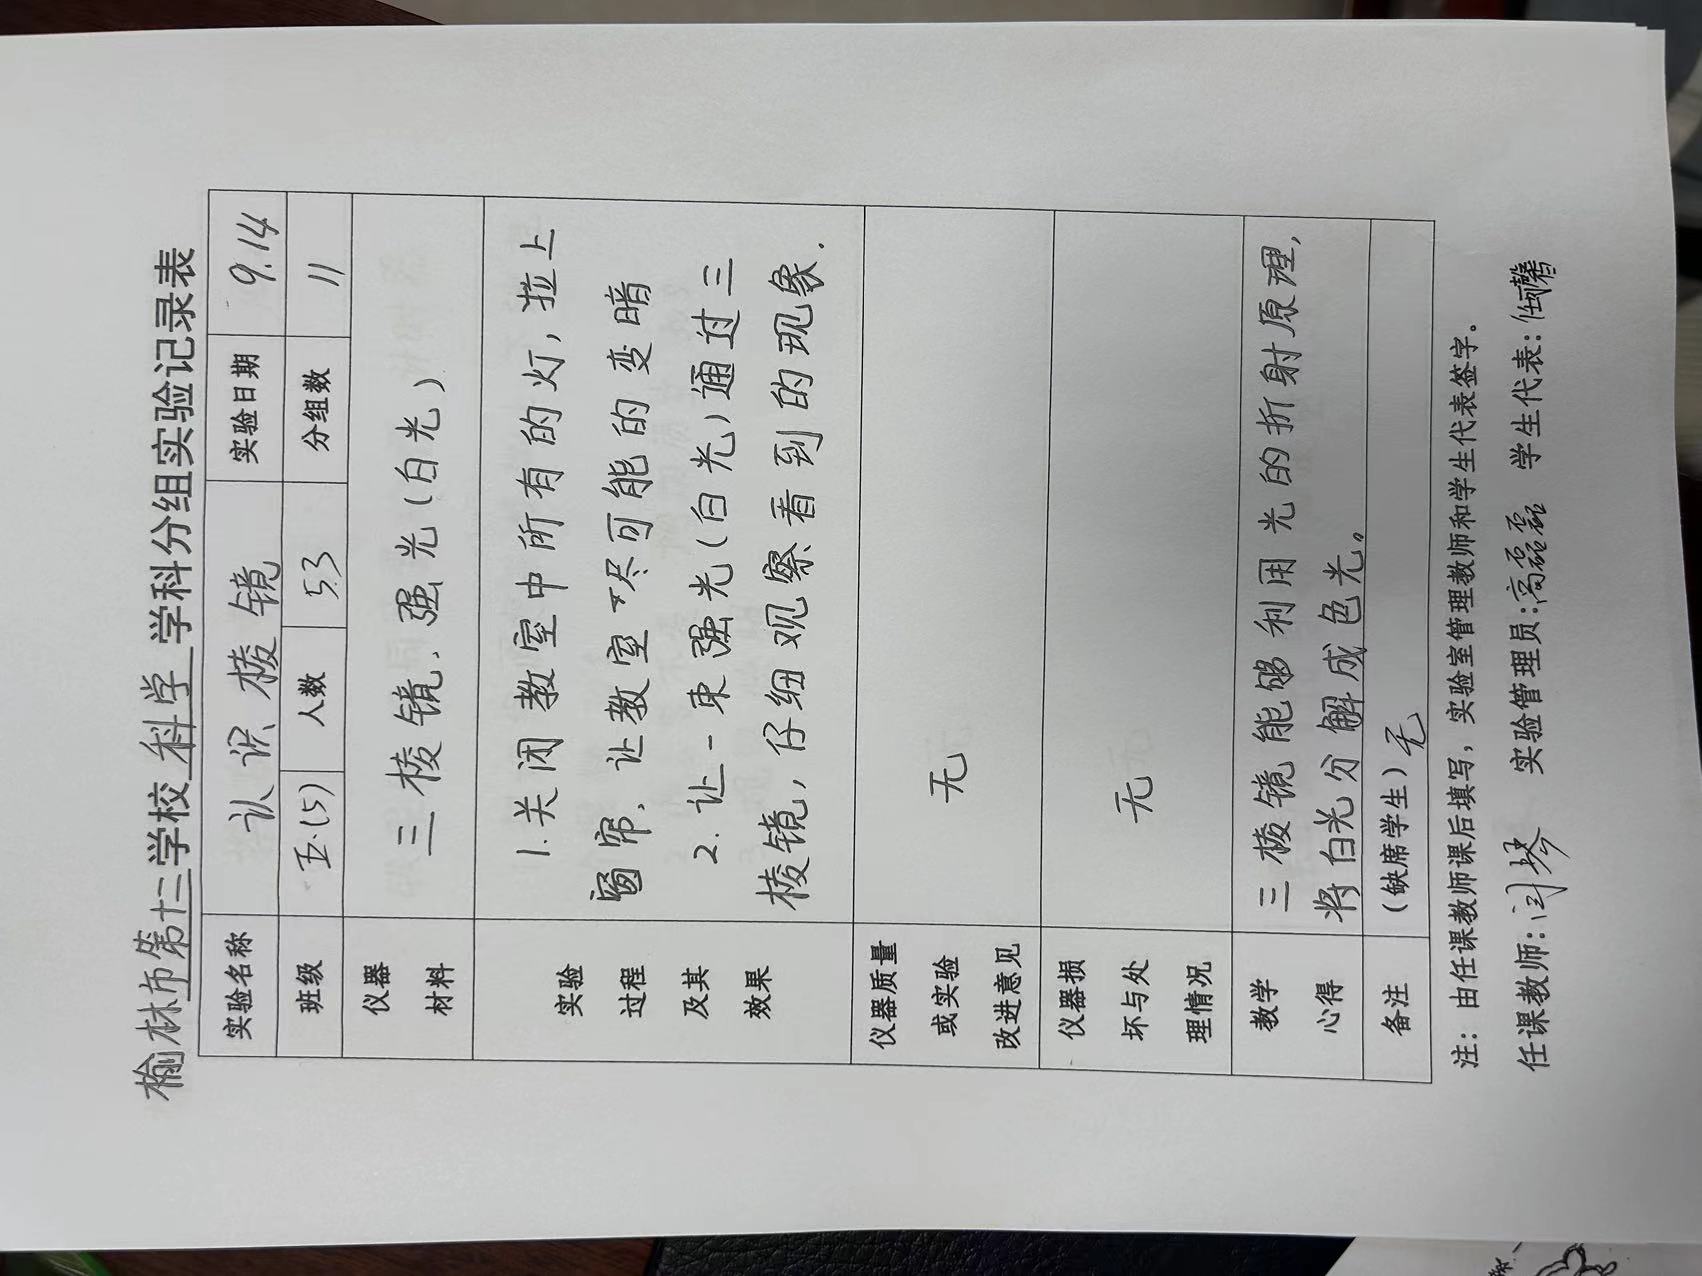 榆林市第十二学校 科学 学科分组实验记录表
实验名称 认识棱镜 实验日期 9.14
班级 五.(5) 人数 53 分组数 11
仪器
材料
三棱镜、强光(白光)
实验
过程
及其
效果
1.关闭教室中所有的灯,拉上
窗帘,让教室尽可能的变暗
2.让一束强光(白光)通过三
棱镜,仔细观察看到的现象.
仪器质量
或实验
改进意见
无
仪器损
坏与处
理情况
无
教学
心得
三棱镜能够利用光的折射原理,
将白光分解成色光。
备注 (缺席学生) 无
注:由任课教师课后填写,实验室管理教师和学生代表签字。
任课教师:闫琴 实验管理员:高磊磊 学生代表: